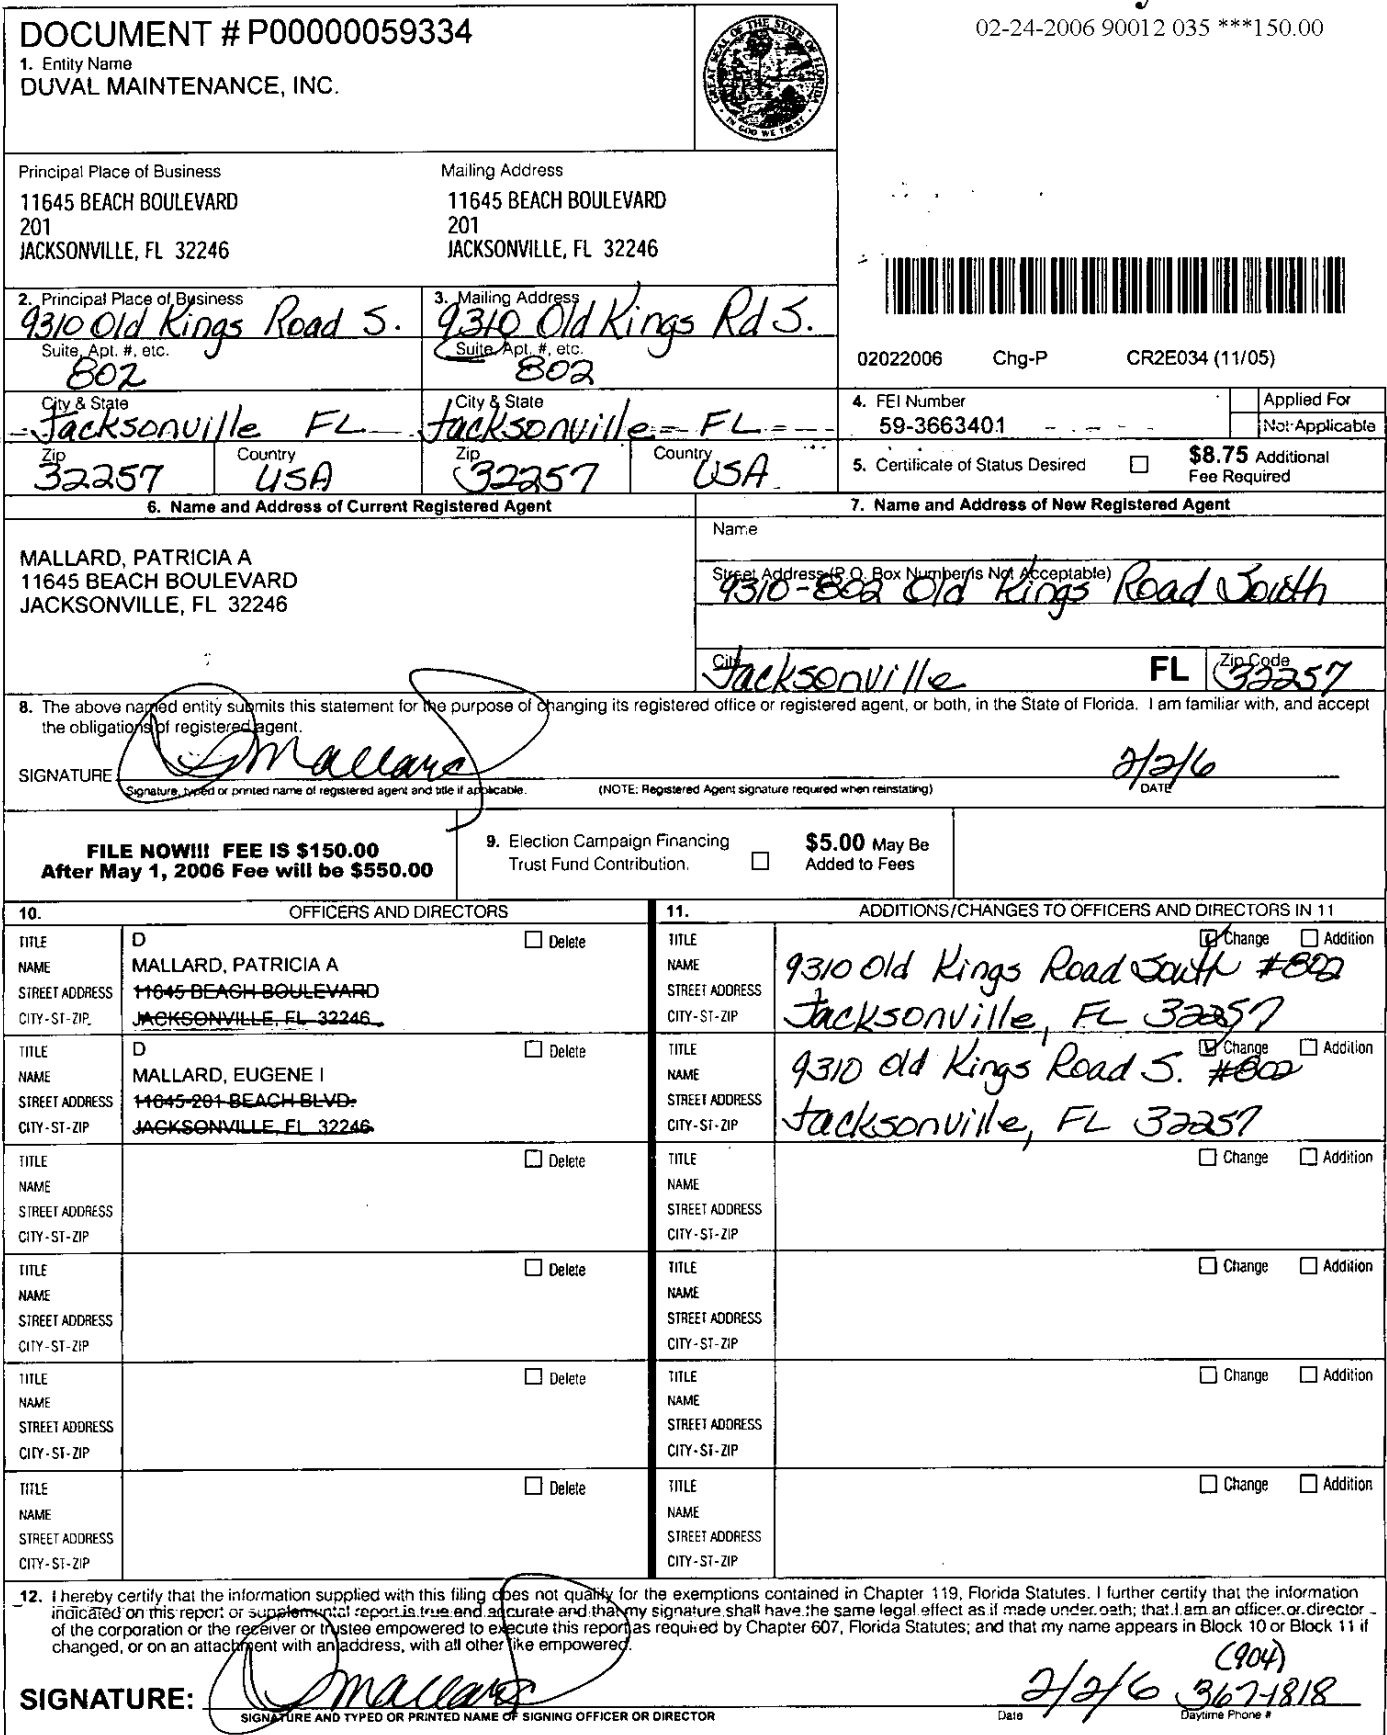 02-24-2006 90012 035 ***150.00
DOCUMENT # P00000059334
1. Entity Name
DUVAL MAINTENANCE, INC.
GREAT SEAL OF THE STATE OF FLORIDA
IN GOD WE TRUST
Principal Place of Business
11645 BEACH BOULEVARD
201
JACKSONVILLE, FL 32246
Mailing Address
11645 BEACH BOULEVARD
201
JACKSONVILLE, FL 32246
2. Principal Place of Business
9310 Old Kings Road S.
Suite, Apt. #, etc.
802
City & State
Jacksonville FL
Zip
32257
Country
USA
3. Mailing Address
9310 Old Kings Rd S.
Suite, Apt. #, etc.
802
City & State
Jacksonville FL
Zip
32257
Country
USA
02022006 Chg-P CR2E034 (11/05)
4. FEI Number
59-3663401
Applied For
Not Applicable
5. Certificate of Status Desired
$8.75 Additional
Fee Required
6. Name and Address of Current Registered Agent
MALLARD, PATRICIA A
11645 BEACH BOULEVARD
JACKSONVILLE, FL 32246
7. Name and Address of New Registered Agent
Name
Street Address (P.O. Box Number is Not Acceptable)
9310-802 Old Kings Road South
City
Jacksonville
FL
Zip Code
32257
8. The above named entity submits this statement for the purpose of changing its registered office or registered agent, or both, in the State of Florida. I am familiar with, and accept
the obligations of registered agent.
SIGNATURE Mallard 2/2/6
Signature, typed or printed name of registered agent and title if applicable. (NOTE: Registered Agent signature required when reinstating) DATE
FILE NOW!!! FEE IS $150.00
After May 1, 2006 Fee will be $550.00
9. Election Campaign Financing
Trust Fund Contribution.
$5.00 May Be
Added to Fees
10. OFFICERS AND DIRECTORS
TITLE D Delete
NAME MALLARD, PATRICIA A
STREET ADDRESS 11645 BEACH BOULEVARD
CITY-ST-ZIP JACKSONVILLE, FL 32246
TITLE D Delete
NAME MALLARD, EUGENE I
STREET ADDRESS 11645-201 BEACH BLVD.
CITY-ST-ZIP JACKSONVILLE, FL 32246
TITLE Delete
NAME
STREET ADDRESS
CITY-ST-ZIP
TITLE Delete
NAME
STREET ADDRESS
CITY-ST-ZIP
TITLE Delete
NAME
STREET ADDRESS
CITY-ST-ZIP
TITLE Delete
NAME
STREET ADDRESS
CITY-ST-ZIP
11. ADDITIONS/CHANGES TO OFFICERS AND DIRECTORS IN 11
TITLE Change Addition
NAME 9310 Old Kings Road South #802
STREET ADDRESS
CITY-ST-ZIP Jacksonville, FL 32257
TITLE Change Addition
NAME 9310 Old Kings Road S. #802
STREET ADDRESS
CITY-ST-ZIP Jacksonville, FL 32257
TITLE Change Addition
NAME
STREET ADDRESS
CITY-ST-ZIP
TITLE Change Addition
NAME
STREET ADDRESS
CITY-ST-ZIP
TITLE Change Addition
NAME
STREET ADDRESS
CITY-ST-ZIP
TITLE Change Addition
NAME
STREET ADDRESS
CITY-ST-ZIP
12. I hereby certify that the information supplied with this filing does not qualify for the exemptions contained in Chapter 119, Florida Statutes. I further certify that the information
indicated on this report or supplemental report is true and accurate and that my signature shall have the same legal effect as if made under oath; that I am an officer or director
of the corporation or the receiver or trustee empowered to execute this report as required by Chapter 607, Florida Statutes; and that my name appears in Block 10 or Block 11 if
changed, or on an attachment with an address, with all other like empowered.
(904)
SIGNATURE: Mallard 2/2/6 367-1818
SIGNATURE AND TYPED OR PRINTED NAME OF SIGNING OFFICER OR DIRECTOR Date Daytime Phone #